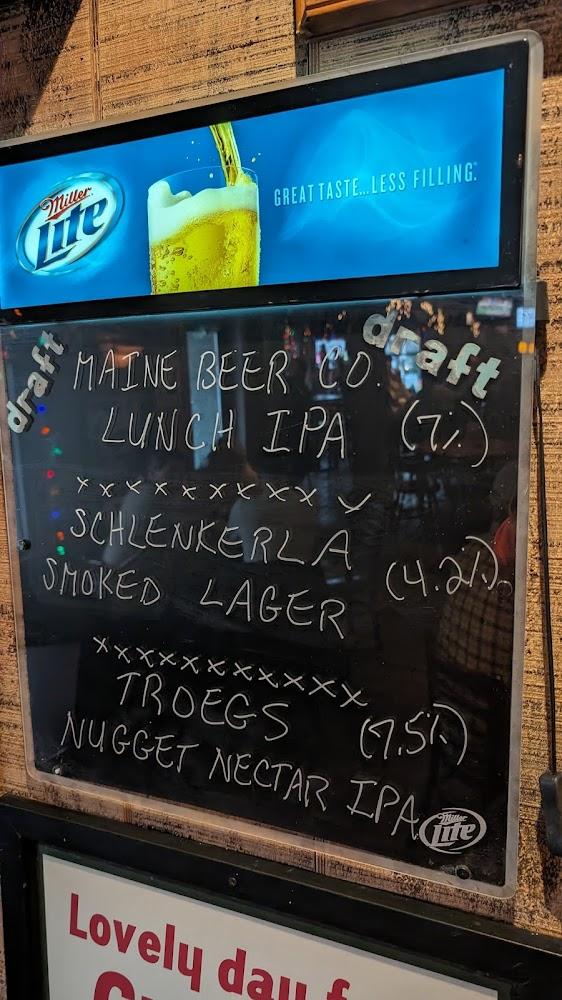 Miller
Lite
GREAT TASTE...LESS FILLING.
draft
draft
MAINE BEER CO.
LUNCH IPA (7%)
xxxxxxxxxx
SCHLENKERLA
SMOKED LAGER (4.2%)
xxxxxxxxxxx
TROEGS (7.5%)
NUGGET NECTAR IPA
Miller
Lite
Lovely day f